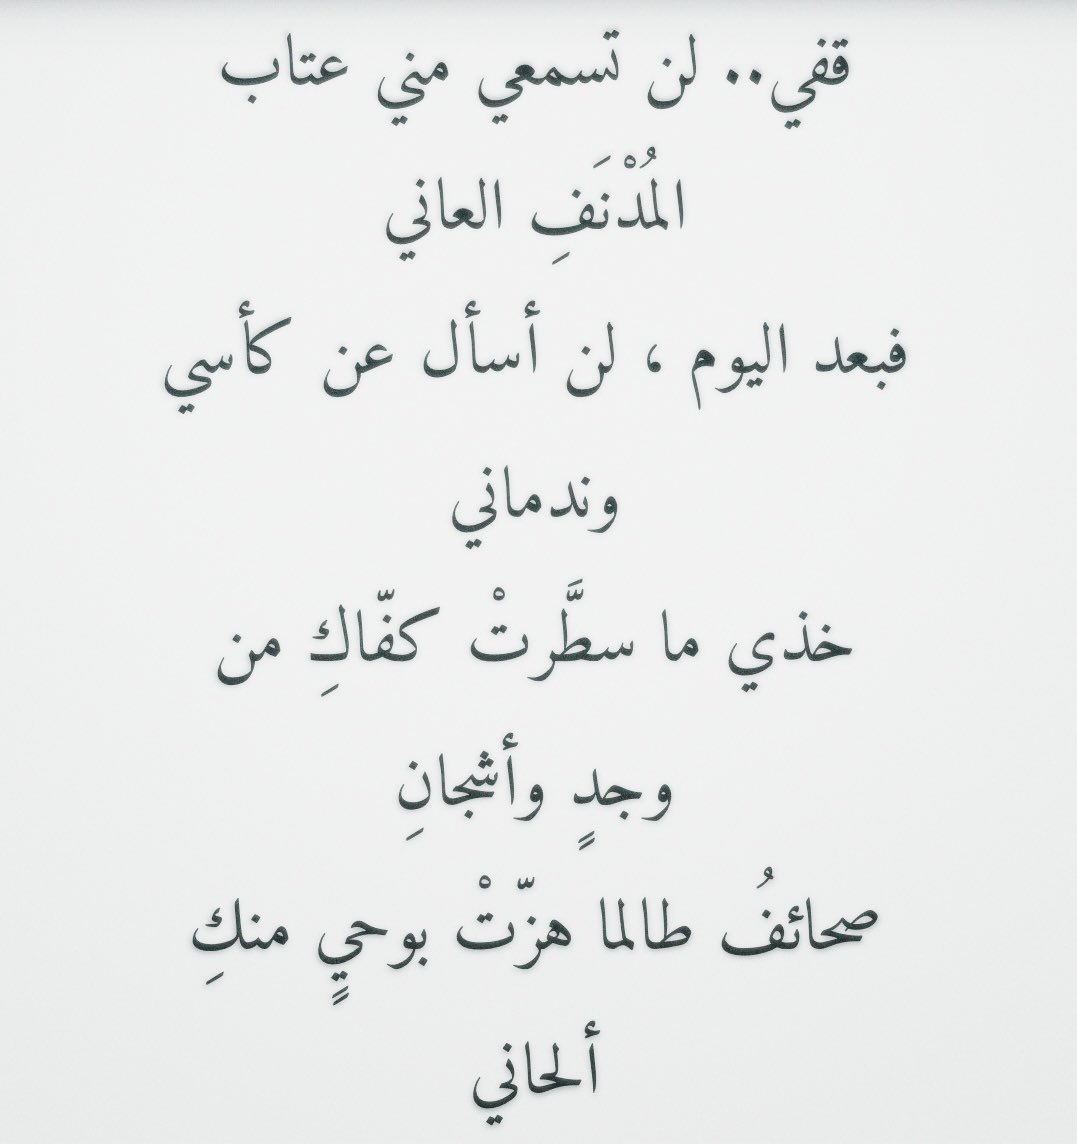 قفي.. لن تسمعي مني عتاب
المُدْنَفِ العاني
فبعد اليوم ، لن أسأل عن كأسي
وندماني
خذي ما سطَّرتْ كفّاكِ من
وجدٍ وأشجانِ
صحائفُ طالما هزّتْ بوحيٍ منكِ
ألحاني